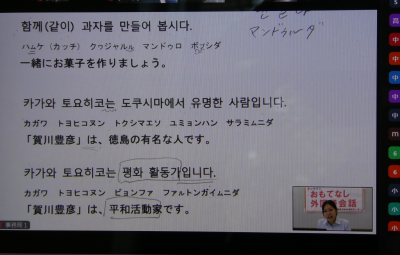 マンドゥルダ
함께(같이) 과자를 만들어 봅시다.
ハムケ（カッチ） クァジャルル マンドゥロ ポプシダ
一緒にお菓子を作りましょう。
카가와 토요히코는 도쿠시마에서 유명한 사람입니다.
カガワ トヨヒコヌン トクシマエソ ユミョンハン サラミムニダ
「賀川豊彦」は、徳島の有名な人です。
카가와 토요히코는 평화 활동가입니다.
カガワ トヨヒコヌン ピョンファ ファルトンガイムニダ
「賀川豊彦」は、平和活動家です。
おもてなし
外国語会話